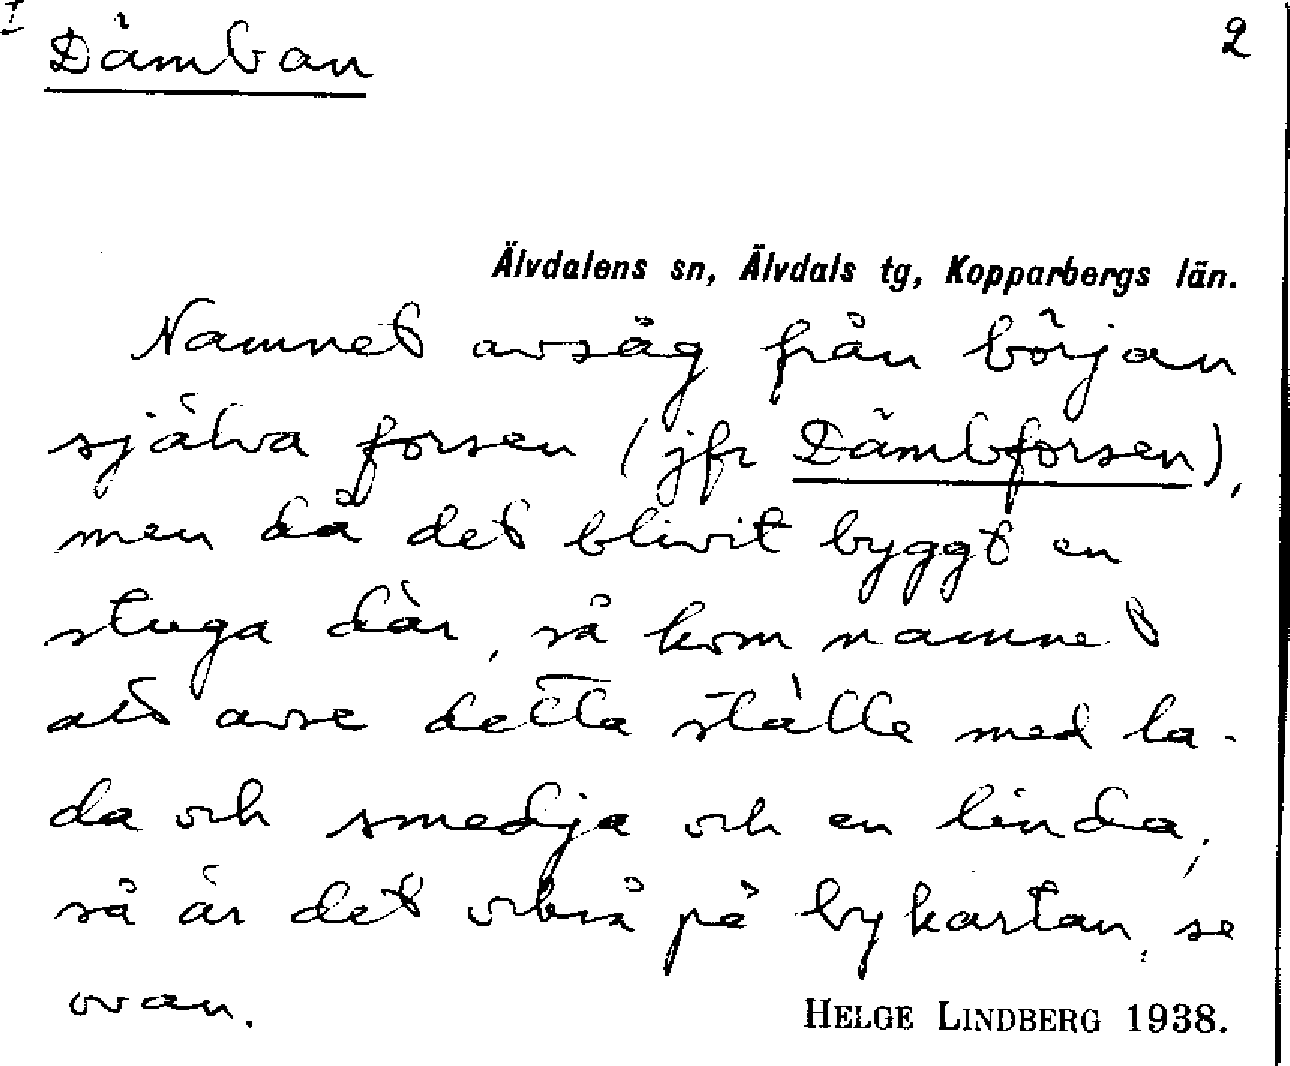 I
Dämban
2
Älvdalens sn, Älvdals tg, Kopparbergs län.
Namnet avsåg från början
själva forsen (jfr Dämbforsen),
men då det blivit byggt en
stuga där, så kom namnet
att avse detta ställe med la-
da och smedja och en linda,
så är det också på bykartan, se
ovan.
HELGE LINDBERG 1938.